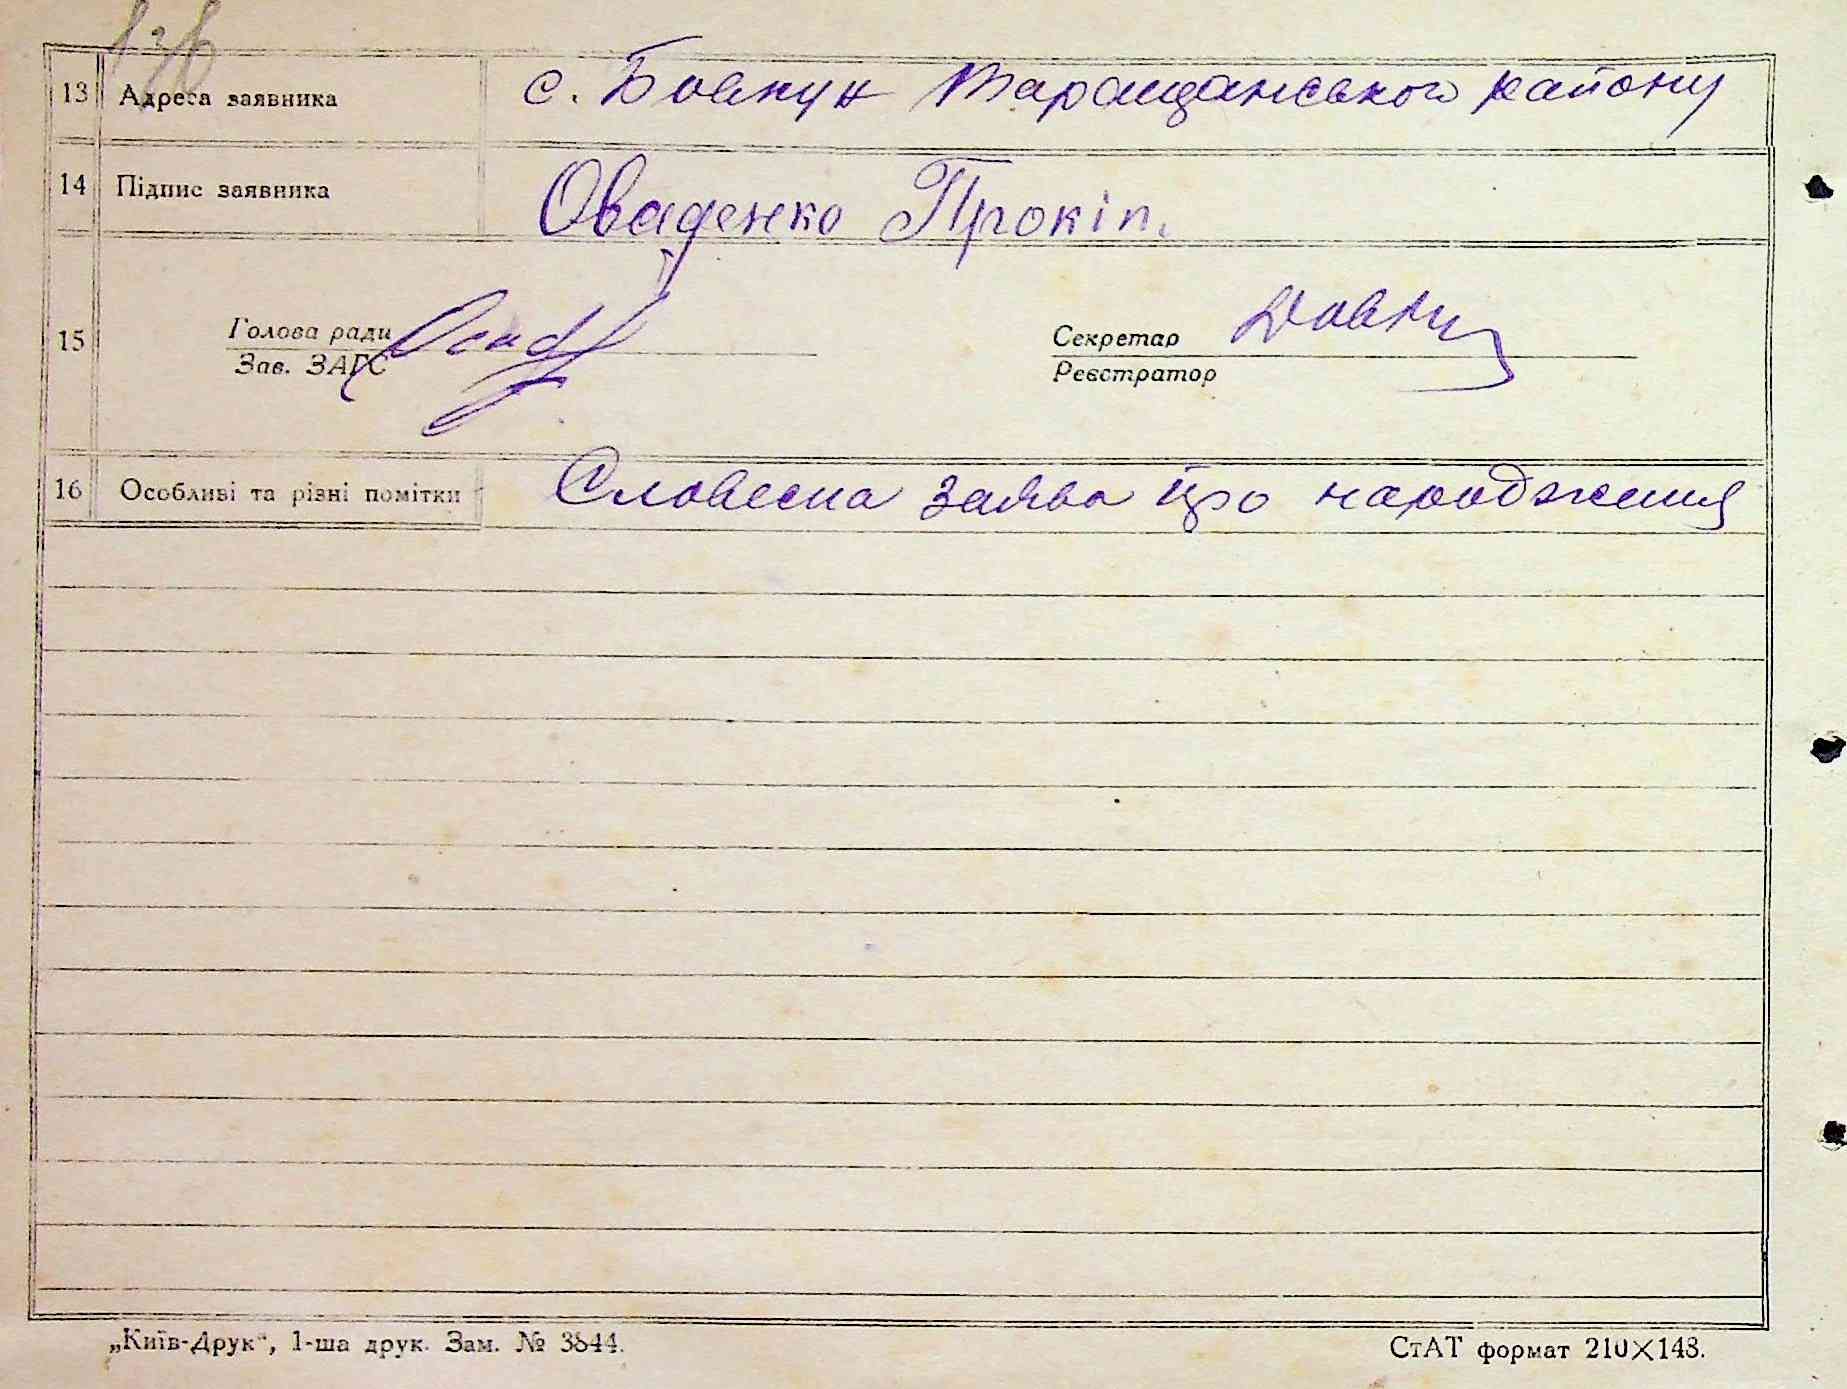 13 Адреса заявника с. Бовкун Таращанського району
14 Підпис заявника Оваденко Прокіп.
15 Голова ради Секретар
Зав. ЗАГС Реєстратор
16 Особливі та різні помітки Словесна заява про народження
„Київ-Друк“, 1-ша друк. Зам. № 3844.
СтАТ формат 210×143.